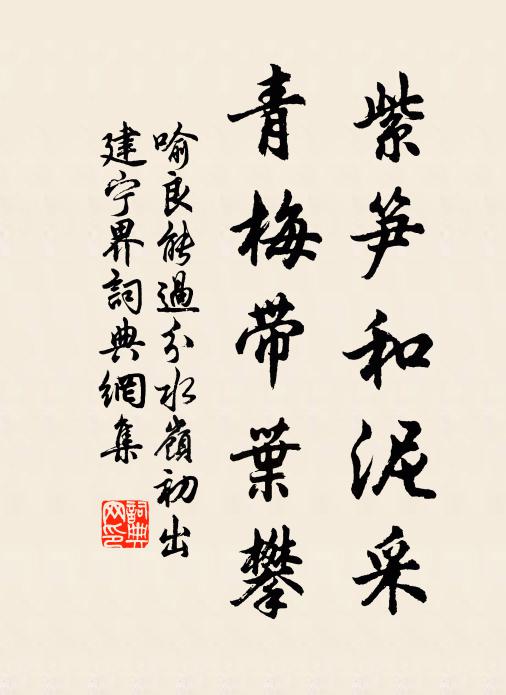 紫笋和泥采
青梅带葉攀
喻良能過分水嶺初出
建宁界詞典網集
詞典
网印